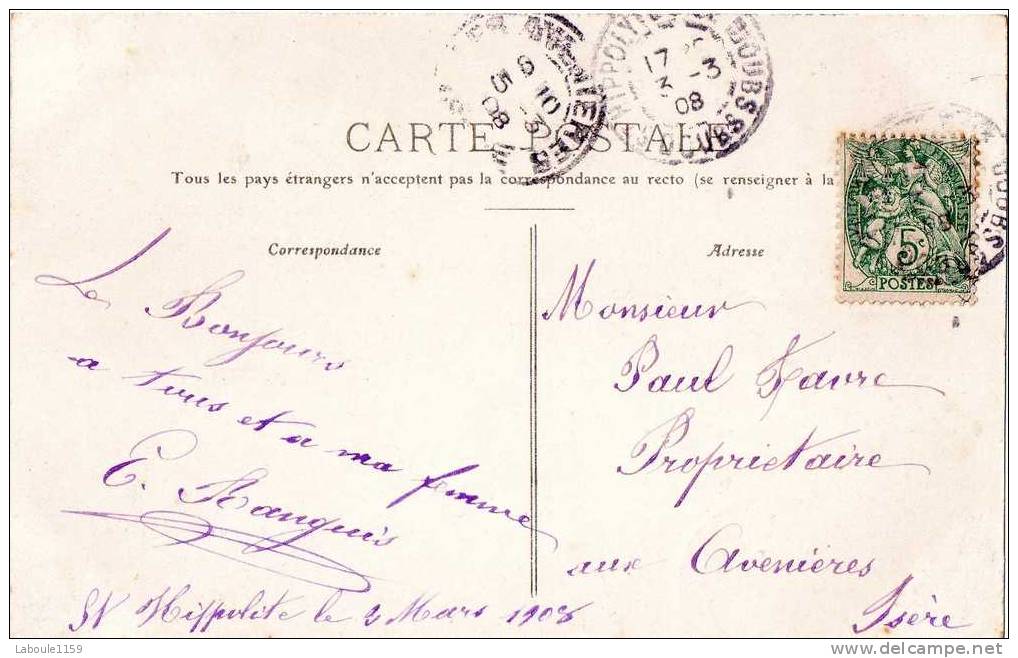 CARTE POSTALE
Tous les pays étrangers n'acceptent pas la correspondance au recto (se renseigner à la
Correspondance
Le Bonjours
a tous et a ma femme
E.
St Hippolite le 3 Mars 1908
Adresse
Monsieur
Paul Favre
Proprietaire
aux Avenières
Isère
HIPPOLYTE DOUBS
17 -3
3
08
DOUBS
AVENIERES
10 -3
08
5c
POSTES
DOUBS
Laboule1159
delcampe.net